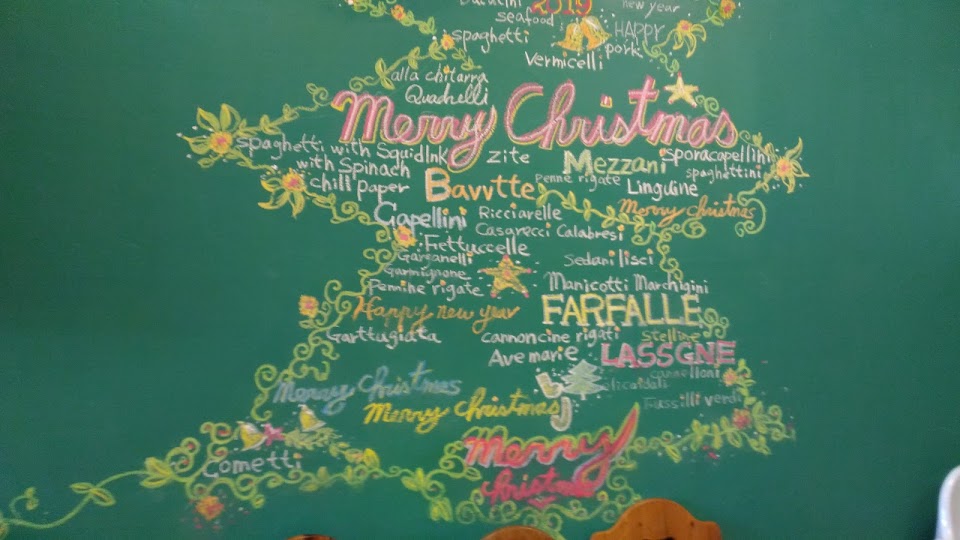 2019 new year
seafood HAPPY
spaghetti pork
Vermicelli
alla chitarra
Quadrelli
Merry Christmas
spaghetti with SquidInk zite Mezzani sporacapellini
with Spinach penne rigate spaghettini
chili paper Bavvtte Linguine
Capellini Ricciarelle Merry christmas
Casarecci Calabresi
Fettuccelle
Garganelli Sedani lisci
Garmignone
Pennine rigate Manicotti Marchigini
Happy new year FARFALLE
Garttugiata cannoncine rigati stelline
Ave marie LASSGNE
cannelloni
Merry Christmas
Merry christmas Fussilli verdi
Merry
christmas
Cometti